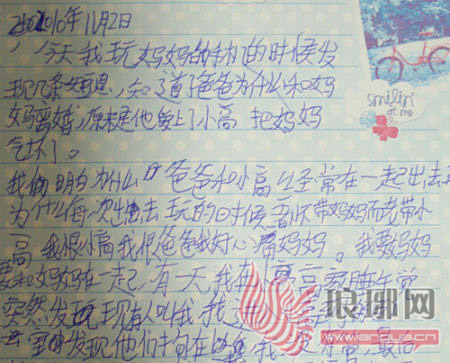 2010年11月2日
今天我玩妈妈的手机的时候发
现几条短息,知道了爸爸为什么和妈
妈离婚,原来是他爱上了小高 把妈妈
气坏了。
我明白为什么 爸爸和小高经常在一起出去
为什么每一次出去玩的时候 都不带妈妈而老带小
高 我恨小高我恨爸爸我好心疼妈妈。我要妈妈
要和妈妈在一起,有一天,我在小高家睡午觉
突然发现 现有人叫我,我进
发现他们抱在
smilin'
at me
琅琊网
www.langya.cn